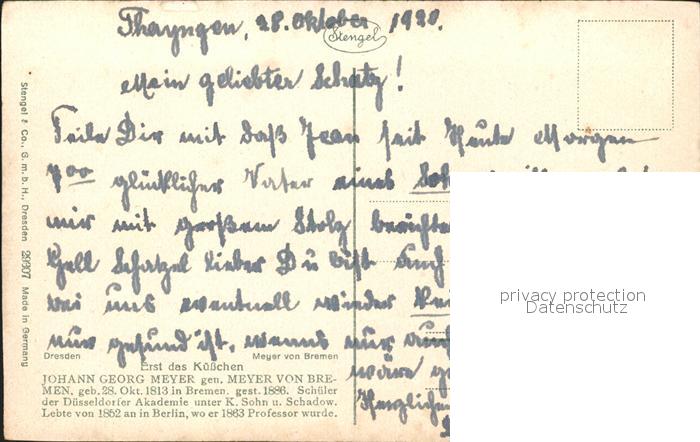 Thayngen, 28. Oktober 1920.
Stengel
Mein geliebter Schatz!
Teile Dir mit daß Jean seit Heute Morgen
7 00 glücklicher Vater eines
mir mit großem Stolz
Gell Schatzel lieber Du bist auch
bei uns eventuell wieder
nur gesund ist, wenns nur auch
wäre
Herzliche
privacy protection
Datenschutz
Dresden Meyer von Bremen
Erst das Küßchen
JOHANN GEORG MEYER gen. MEYER VON BRE-
MEN, geb. 28. Okt. 1813 in Bremen, gest. 1886. Schüler
der Düsseldorfer Akademie unter K. Sohn u. Schadow.
Lebte von 1852 an in Berlin, wo er 1863 Professor wurde.
Stengel & Co., G. m. b. H., Dresden 29307 Made in Germany